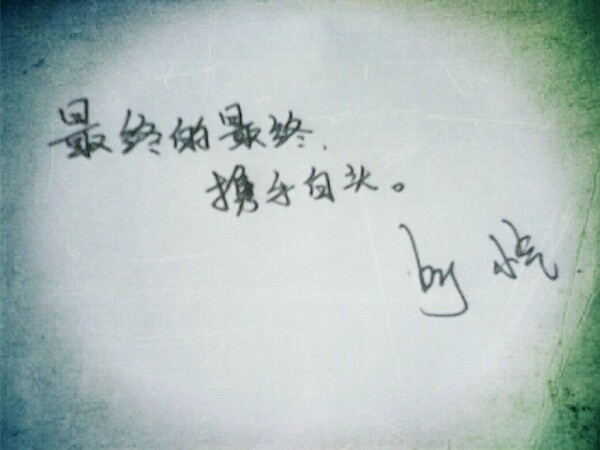 最终的最终.
携手白头。
by